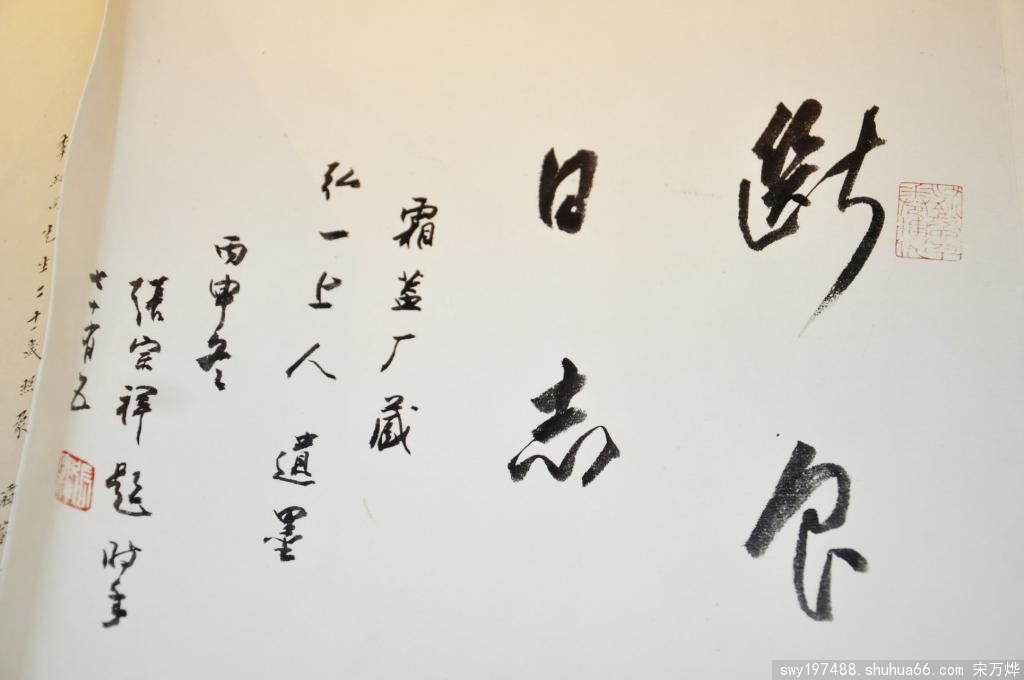 斷食
日志
霜蓋厂藏
弘一上人遺墨
丙申冬
張宗祥題时年
七十有五
先生二十歲
swy197488. shuhua66. com 宋万烨